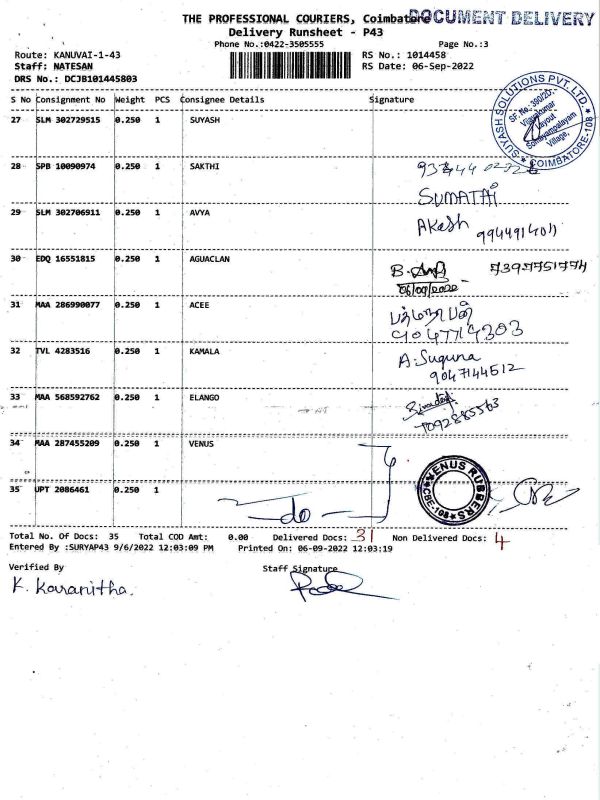 THE PROFESSIONAL COURIERS, Coimbatore
DOCUMENT DELIVERY
Delivery Runsheet - P43
Phone No.:0422-3505555 Page No.:3
Route: KANUVAI-1-43 RS No.: 1014458
Staff: NATESAN RS Date: 06-Sep-2022
DRS No.: DCJB101445803
S No Consignment No Weight PCS Consignee Details Signature
27 SLM 302729515 0.250 1 SUYASH
SUYASH SOLUTIONS PVT. LTD.
SF. No: 390/2D,
Vijayakumar
Layout
Somayampalayam
Village,
COIMBATORE-108
28 SPB 10090974 0.250 1 SAKTHI
SUMATHI
29 SLM 302706911 0.250 1 AVYA
Akash 9944914011
30 EDQ 16551815 0.250 1 AGUACLAN
B. 7397751774
06/09/2022
31 MAA 286990077 0.250 1 ACEE
32 TVL 4283516 0.250 1 KAMALA
A. Suguna
9047144512
33 MAA 568592762 0.250 1 ELANGO
7092885563
34 MAA 287455209 0.250 1 VENUS
VENUS RUBBERS
CBE-108
35 UPT 2086461 0.250 1
do
Total No. Of Docs: 35 Total COD Amt: 0.00 Delivered Docs: 31 Non Delivered Docs: 4
Entered By :SURYAP43 9/6/2022 12:03:09 PM Printed On: 06-09-2022 12:03:19
Verified By Staff Signature
K. Kavanitha.